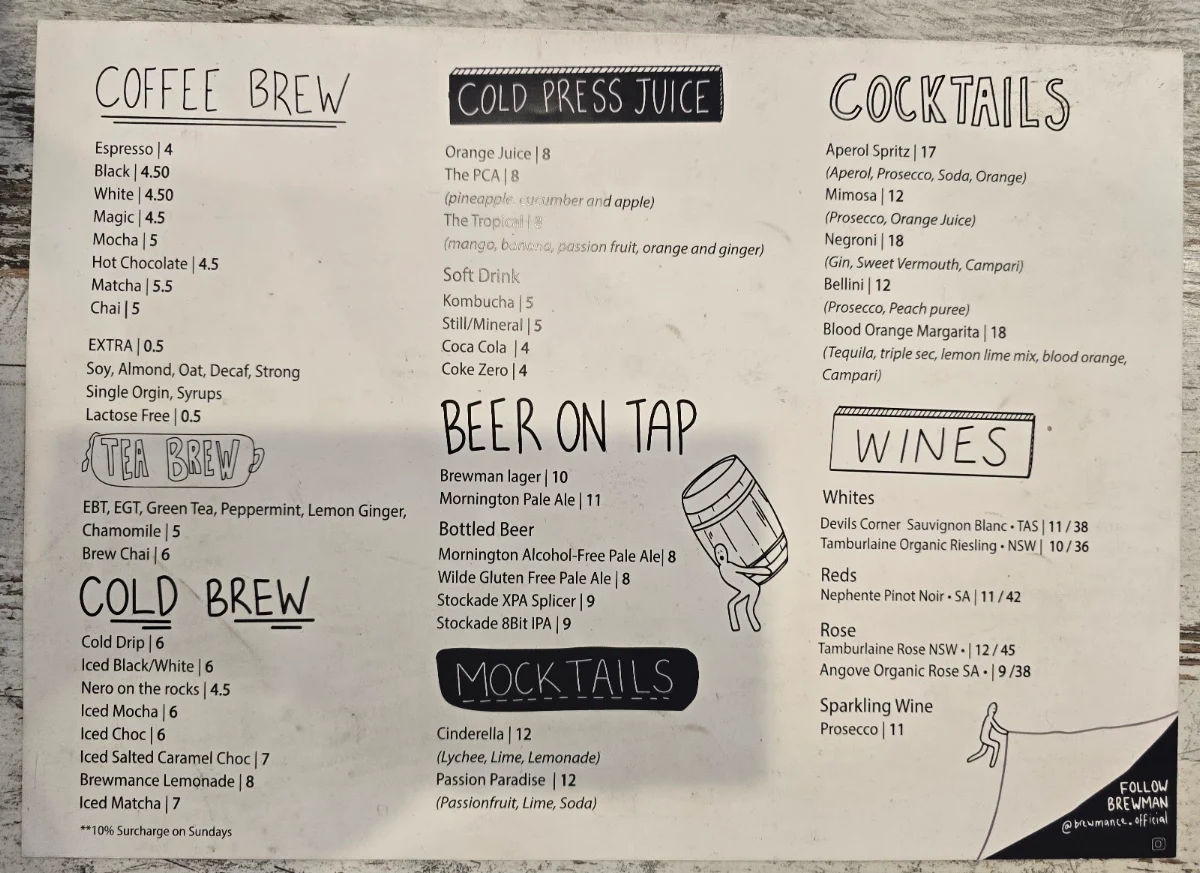 COFFEE BREW
Espresso | 4
Black | 4.50
White | 4.50
Magic | 4.5
Mocha | 5
Hot Chocolate | 4.5
Matcha | 5.5
Chai | 5
EXTRA | 0.5
Soy, Almond, Oat, Decaf, Strong
Single Orgin, Syrups
Lactose Free | 0.5
TEA BREW
EBT, EGT, Green Tea, Peppermint, Lemon Ginger,
Chamomile | 5
Brew Chai | 6
COLD BREW
Cold Drip | 6
Iced Black/White | 6
Nero on the rocks | 4.5
Iced Mocha | 6
Iced Choc | 6
Iced Salted Caramel Choc | 7
Brewmance Lemonade | 8
Iced Matcha | 7
**10% Surcharge on Sundays
COLD PRESS JUICE
Orange Juice | 8
The PCA | 8
(pineapple, cucumber and apple)
The Tropical | 8
(mango, banana, passion fruit, orange and ginger)
Soft Drink
Kombucha | 5
Still/Mineral | 5
Coca Cola | 4
Coke Zero | 4
BEER ON TAP
Brewman lager | 10
Mornington Pale Ale | 11
Bottled Beer
Mornington Alcohol-Free Pale Ale| 8
Wilde Gluten Free Pale Ale | 8
Stockade XPA Splicer | 9
Stockade 8Bit IPA | 9
MOCKTAILS
Cinderella | 12
(Lychee, Lime, Lemonade)
Passion Paradise | 12
(Passionfruit, Lime, Soda)
COCKTAILS
Aperol Spritz | 17
(Aperol, Prosecco, Soda, Orange)
Mimosa | 12
(Prosecco, Orange Juice)
Negroni | 18
(Gin, Sweet Vermouth, Campari)
Bellini | 12
(Prosecco, Peach puree)
Blood Orange Margarita | 18
(Tequila, triple sec, lemon lime mix, blood orange,
Campari)
WINES
Whites
Devils Corner Sauvignon Blanc • TAS | 11 / 38
Tamburlaine Organic Riesling • NSW | 10 / 36
Reds
Nephente Pinot Noir • SA | 11 / 42
Rose
Tamburlaine Rose NSW • | 12 / 45
Angove Organic Rose SA • | 9 /38
Sparkling Wine
Prosecco | 11
FOLLOW
BREWMAN
@brewmance.official